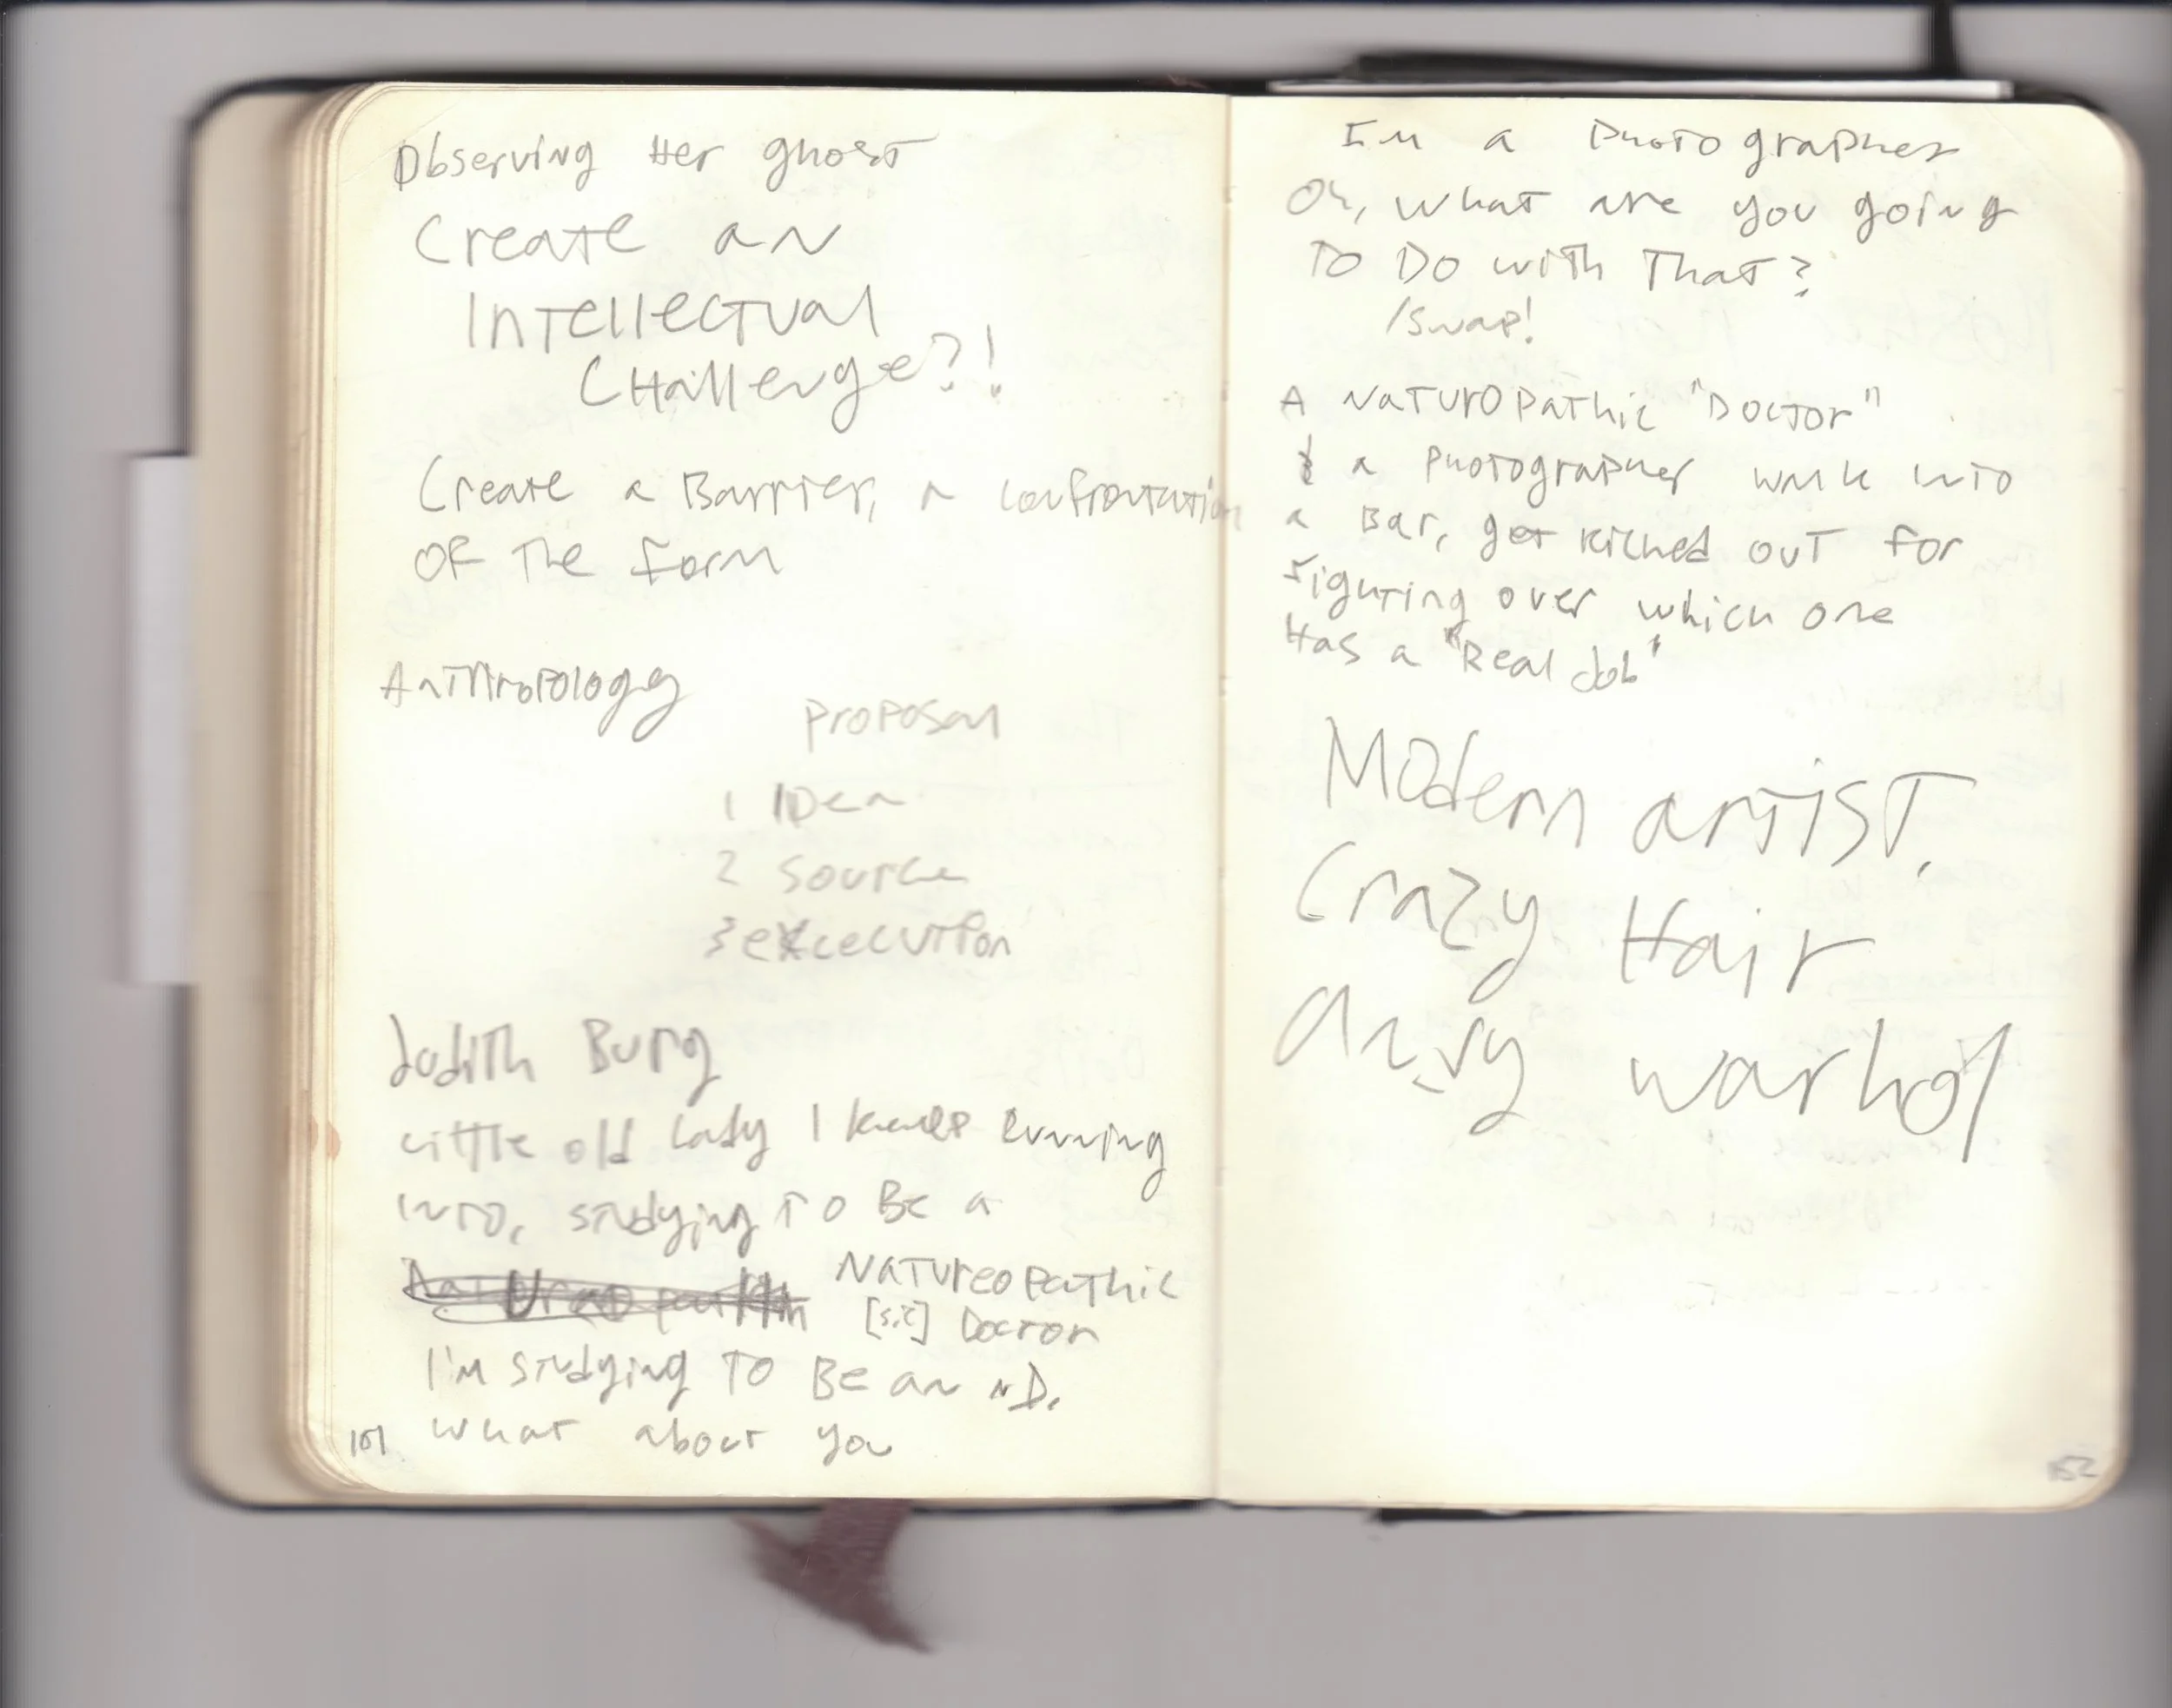 Observing Her ghost
Create an
Intellectual
Challenge?!
Create a Barrier, a confrontation
OF The form
Anthropology
Proposal
1 IDea
2 Source
3 execution
Judith Burg
Little old Lady I keep running
into, studying To Be a
Natureopathic
[sic] Doctor
I'm studying To Be an ND.
What about you
151
I'm a Photographer
Oh, what are you going
To Do with That?
/swap!
A Naturopathic "Doctor"
& a Photographer walk into
a Bar, get kicked out for
fighting over which one
Has a "Real Job"
Modern artist.
Crazy Hair
Andy Warhol
152